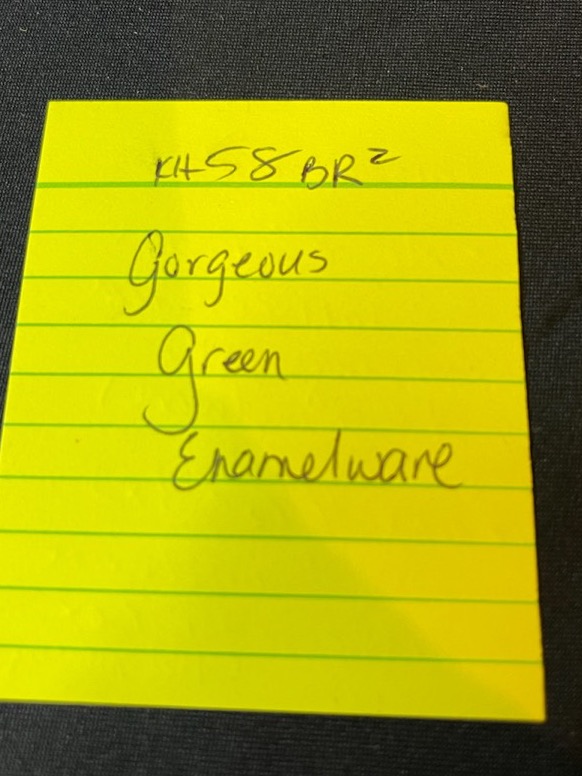 KH58BR²
Gorgeous
Green
Enamelware